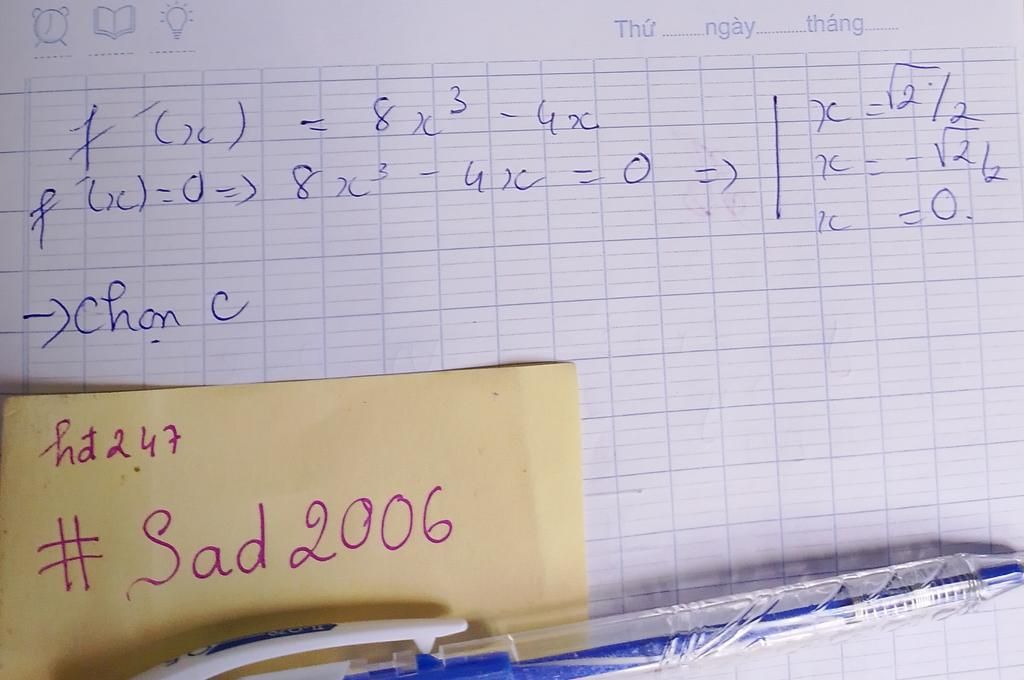 Thứ ..........ngày............tháng........
f '(x) = 8x³ - 4x
f '(x) = 0 => 8x³ - 4x = 0 => x = √2/2
x = -√2/2
x = 0.
→ Chọn C
hđ247
# Sad 2006